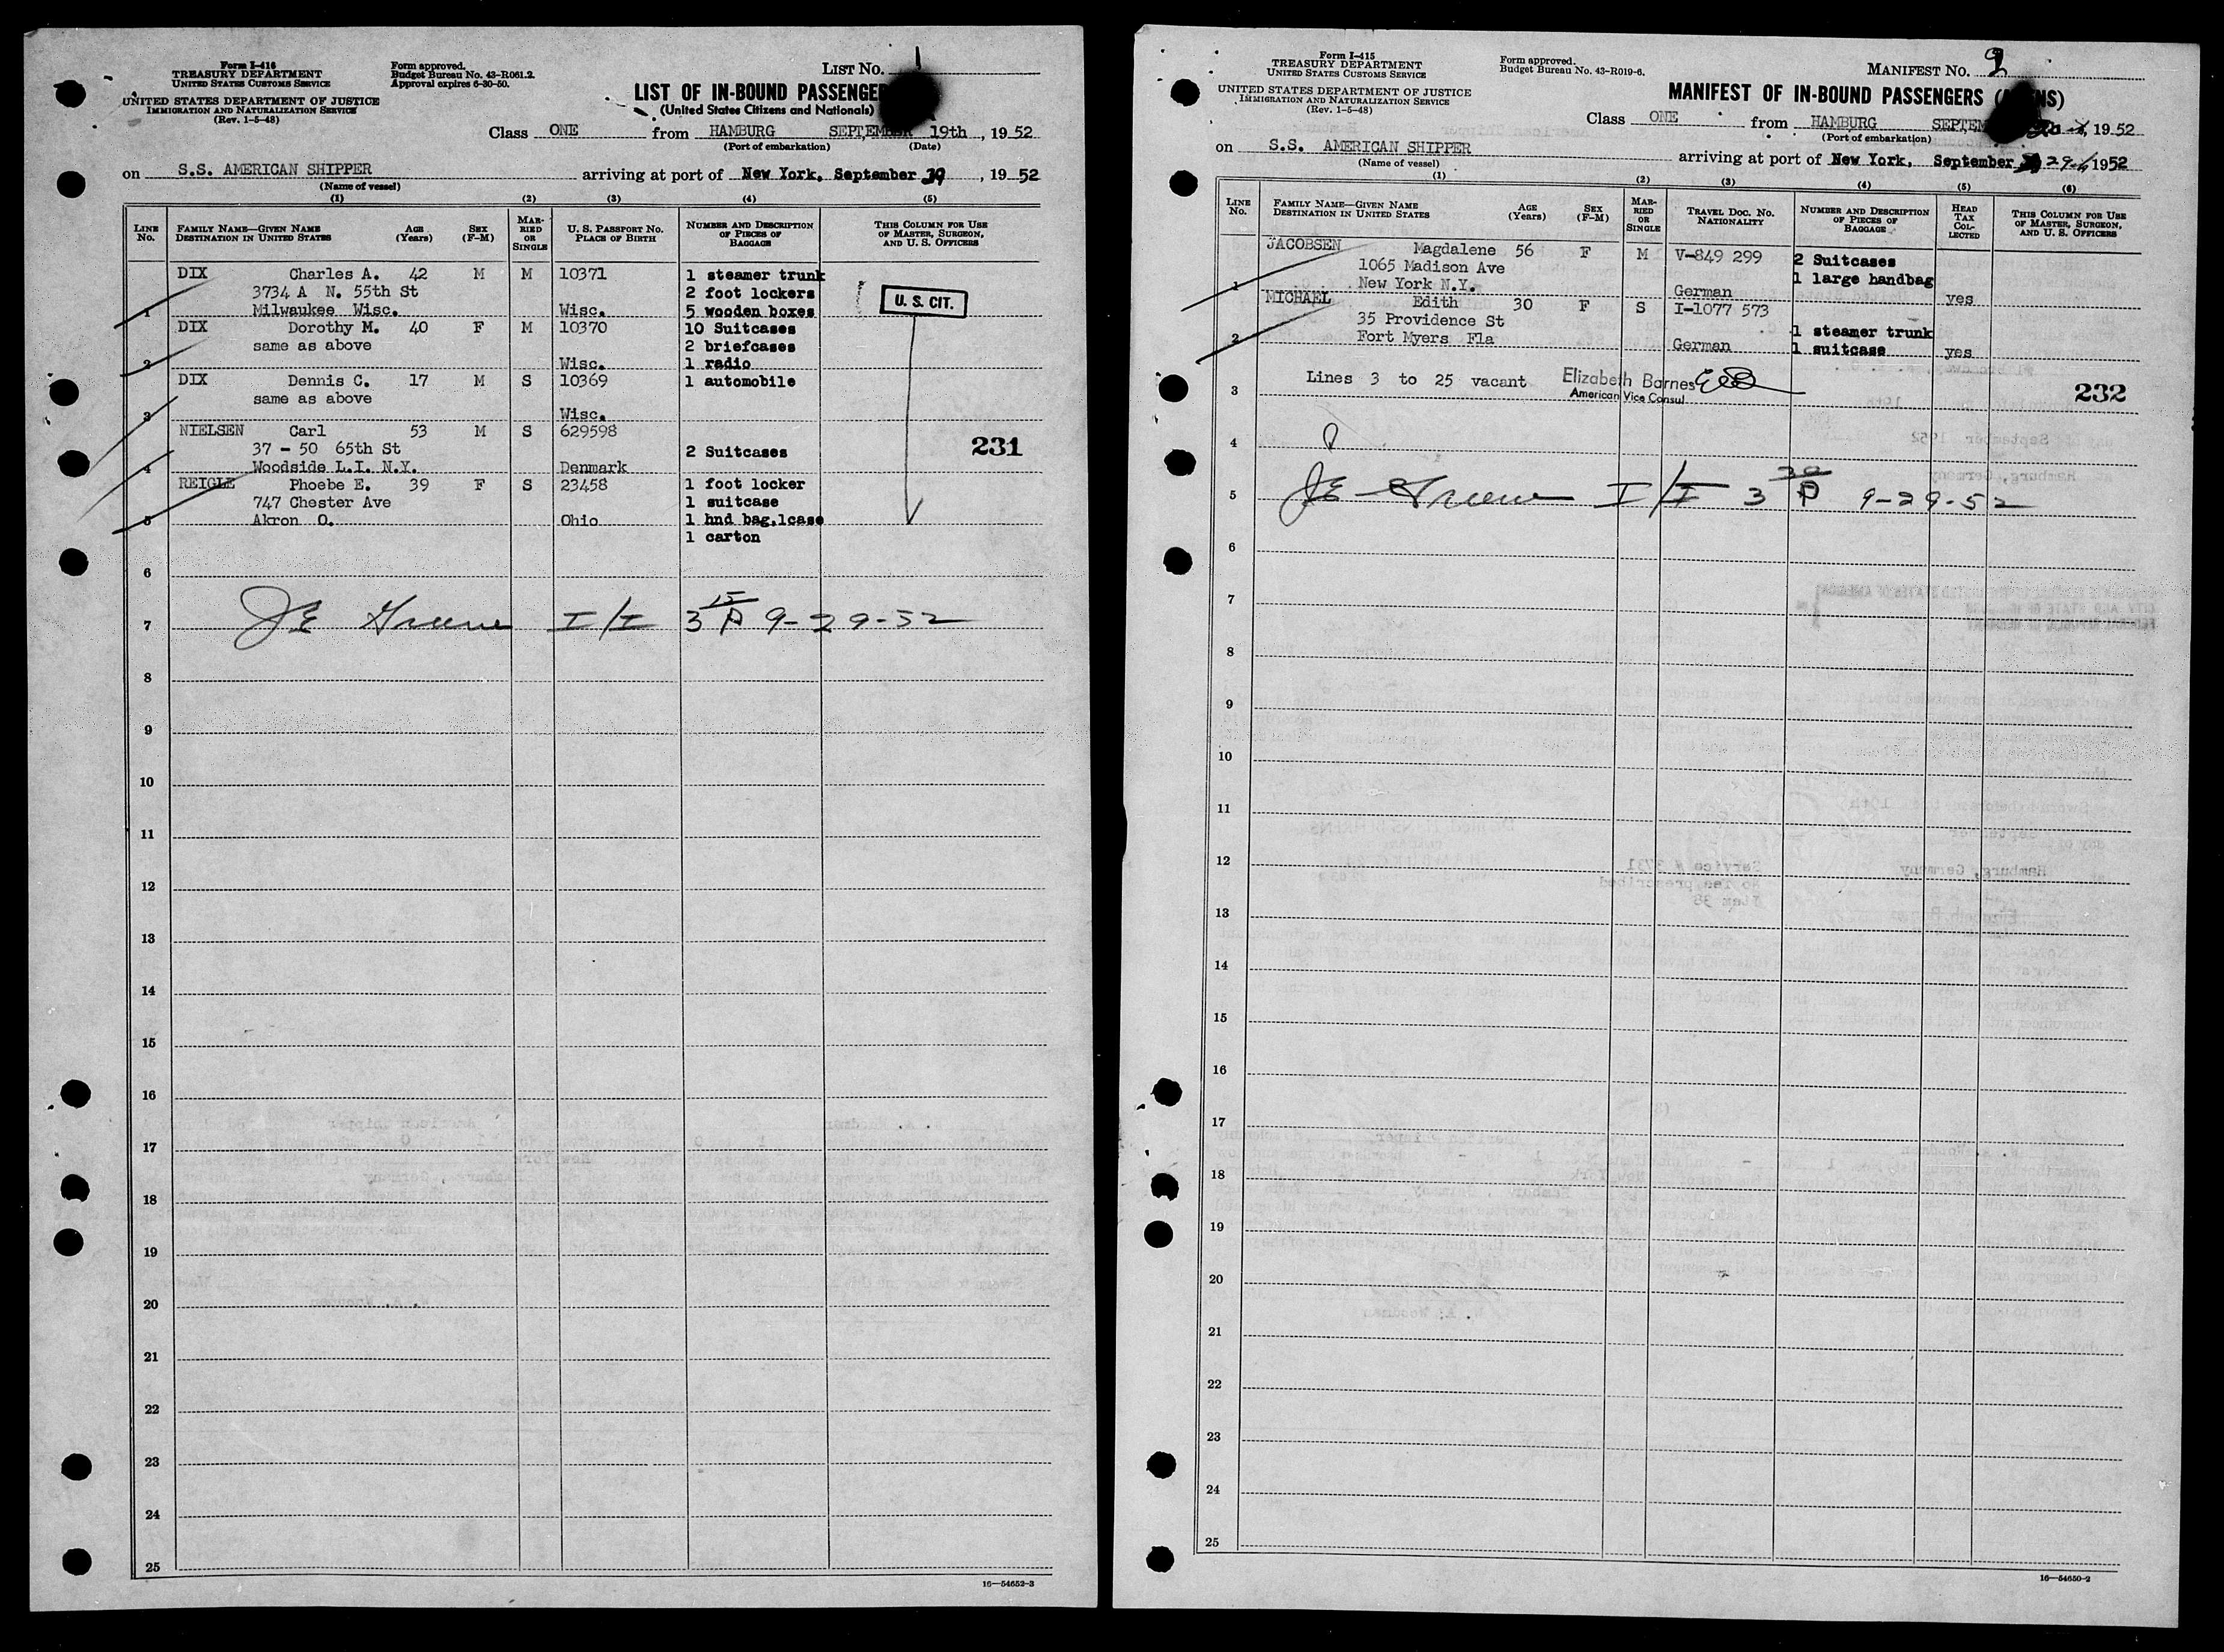 Form I-416
TREASURY DEPARTMENT
UNITED STATES CUSTOMS SERVICE
UNITED STATES DEPARTMENT OF JUSTICE
IMMIGRATION AND NATURALIZATION SERVICE
(Rev. 1-5-48)
Form approved.
Budget Bureau No. 43-R061.2.
Approval expires 6-30-50.
LIST NO. 1
LIST OF IN-BOUND PASSENGER
(United States Citizens and Nationals)
Class ONE from HAMBURG SEPTEMBER 19th, 1952
(Port of embarkation) (Date)
on S.S. AMERICAN SHIPPER arriving at port of New York, September 29, 1952
(Name of vessel)
(1) (2) (3) (4) (5)
LINE No. FAMILY NAME—GIVEN NAME DESTINATION IN UNITED STATES AGE (Years) SEX (F-M) MARRIED OR SINGLE U. S. PASSPORT NO. PLACE OF BIRTH NUMBER AND DESCRIPTION OF PIECES OF BAGGAGE THIS COLUMN FOR USE OF MASTER, SURGEON, AND U. S. OFFICERS
DIX Charles A. 42 M M 10371 1 steamer trunk
3734 A N. 55th St 2 foot lockers U. S. CIT.
1 Milwaukee Wisc. Wisc. 5 wooden boxes
DIX Dorothy M. 40 F M 10370 10 Suitcases
same as above 2 briefcases
2 Wisc. 1 radio
DIX Dennis C. 17 M S 10369 1 automobile
same as above
3 Wisc.
NIELSEN Carl 53 M S 629598
37 - 50 65th St 2 Suitcases 231
4 Woodside L.I. N.Y. Denmark
REIGLE Phoebe E. 39 F S 23458 1 foot locker
747 Chester Ave 1 suitcase
5 Akron O. Ohio 1 hnd bag,1case
1 carton
6
7 JE Greene I/I 3 15 P 9-29-52
8
9
10
11
12
13
14
15
16
17
18
19
20
21
22
23
24
25
16—54652-3
Form I-415
TREASURY DEPARTMENT
UNITED STATES CUSTOMS SERVICE
UNITED STATES DEPARTMENT OF JUSTICE
IMMIGRATION AND NATURALIZATION SERVICE
(Rev. 1-5-48)
Form approved.
Budget Bureau No. 43-R019-6.
MANIFEST NO. 2
MANIFEST OF IN-BOUND PASSENGERS
Class ONE from HAMBURG SEPTEM 1952
(Port of embarkation)
on S.S. AMERICAN SHIPPER arriving at port of New York, September 29, 1952
(Name of vessel)
(1) (2) (3) (4) (5) (6)
LINE No. FAMILY NAME—GIVEN NAME DESTINATION IN UNITED STATES AGE (Years) SEX (F-M) MARRIED OR SINGLE TRAVEL DOC. NO. NATIONALITY NUMBER AND DESCRIPTION OF PIECES OF BAGGAGE HEAD TAX COLLECTED THIS COLUMN FOR USE OF MASTER, SURGEON, AND U. S. OFFICERS
JACOBSEN Magdalene 56 F M V-849 299 2 Suitcases
1065 Madison Ave 1 large handbag
1 New York N.Y. German yes
MICHAEL Edith 30 F S I-1077 573
35 Providence St 1 steamer trunk
2 Fort Myers Fla German 1 suitcase yes
3 Lines 3 to 25 vacant Elizabeth Barnes EB 232
American Vice Consul
4
5 JE Greene I/I 3 30 P 9-29-52
6
7
8
9
10
11
12
13
14
15
16
17
18
19
20
21
22
23
24
25
16—54650-2